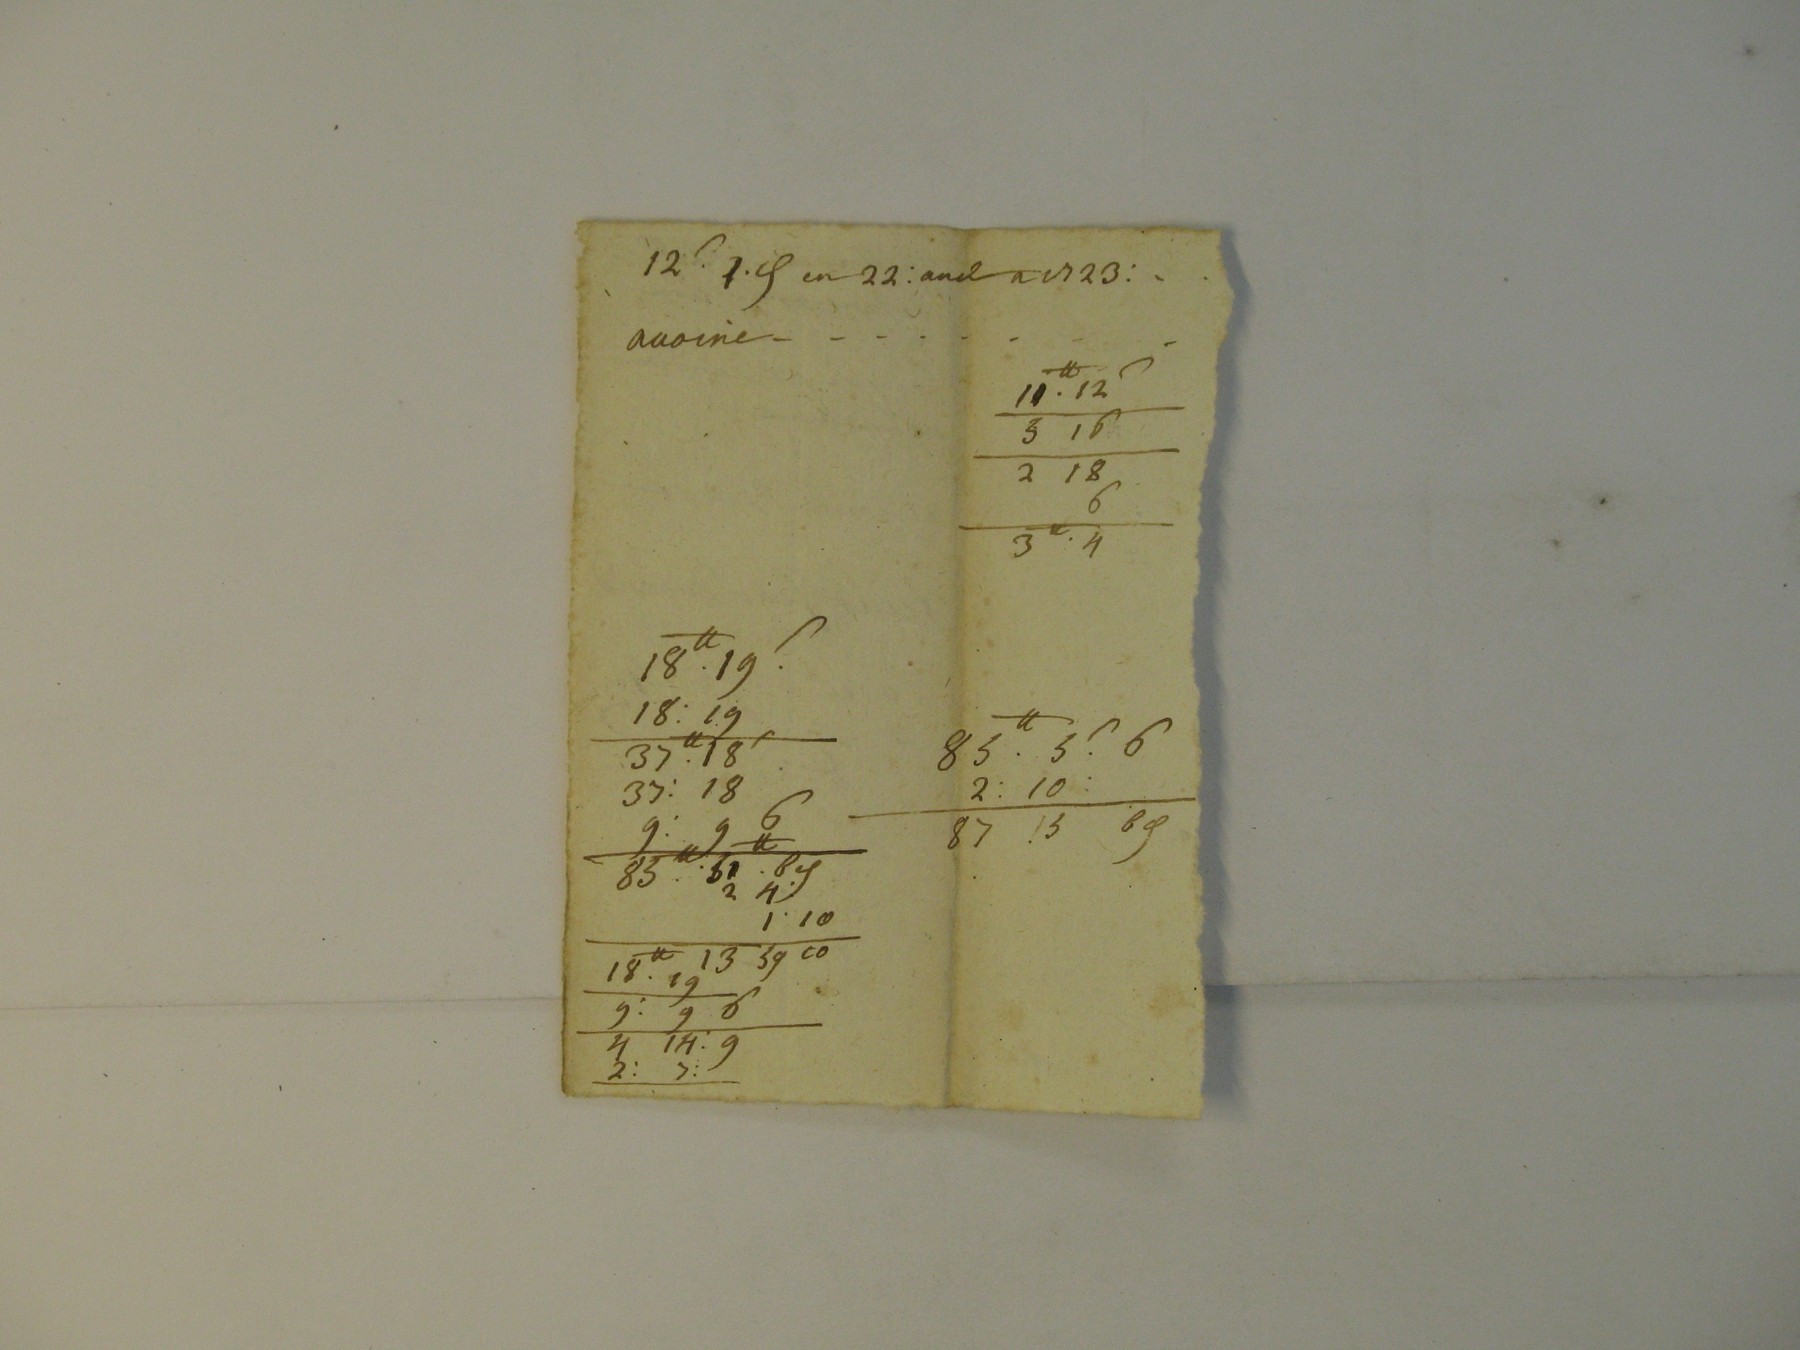 12ˢ 7.₰ en 22: and a et 23: -
auoine - - - - - - - -
11ᵗᵗ. 12ˢ
5 16
2 18
6
3ᵗᵗ. 4
18ᵗᵗ. 19ˢ.
18: 19
37ᵗᵗ. 18ˢ
37: 18
9: 9 6
85ᵗᵗ. 5 . 6₰
2 4
1: 10
13 59 10
18ᵗᵗ. 19
9: 9 6
4 14: 9
2: 7:
85ᵗᵗ. 5ˢ. 6
2: 10:
87 15 6₰